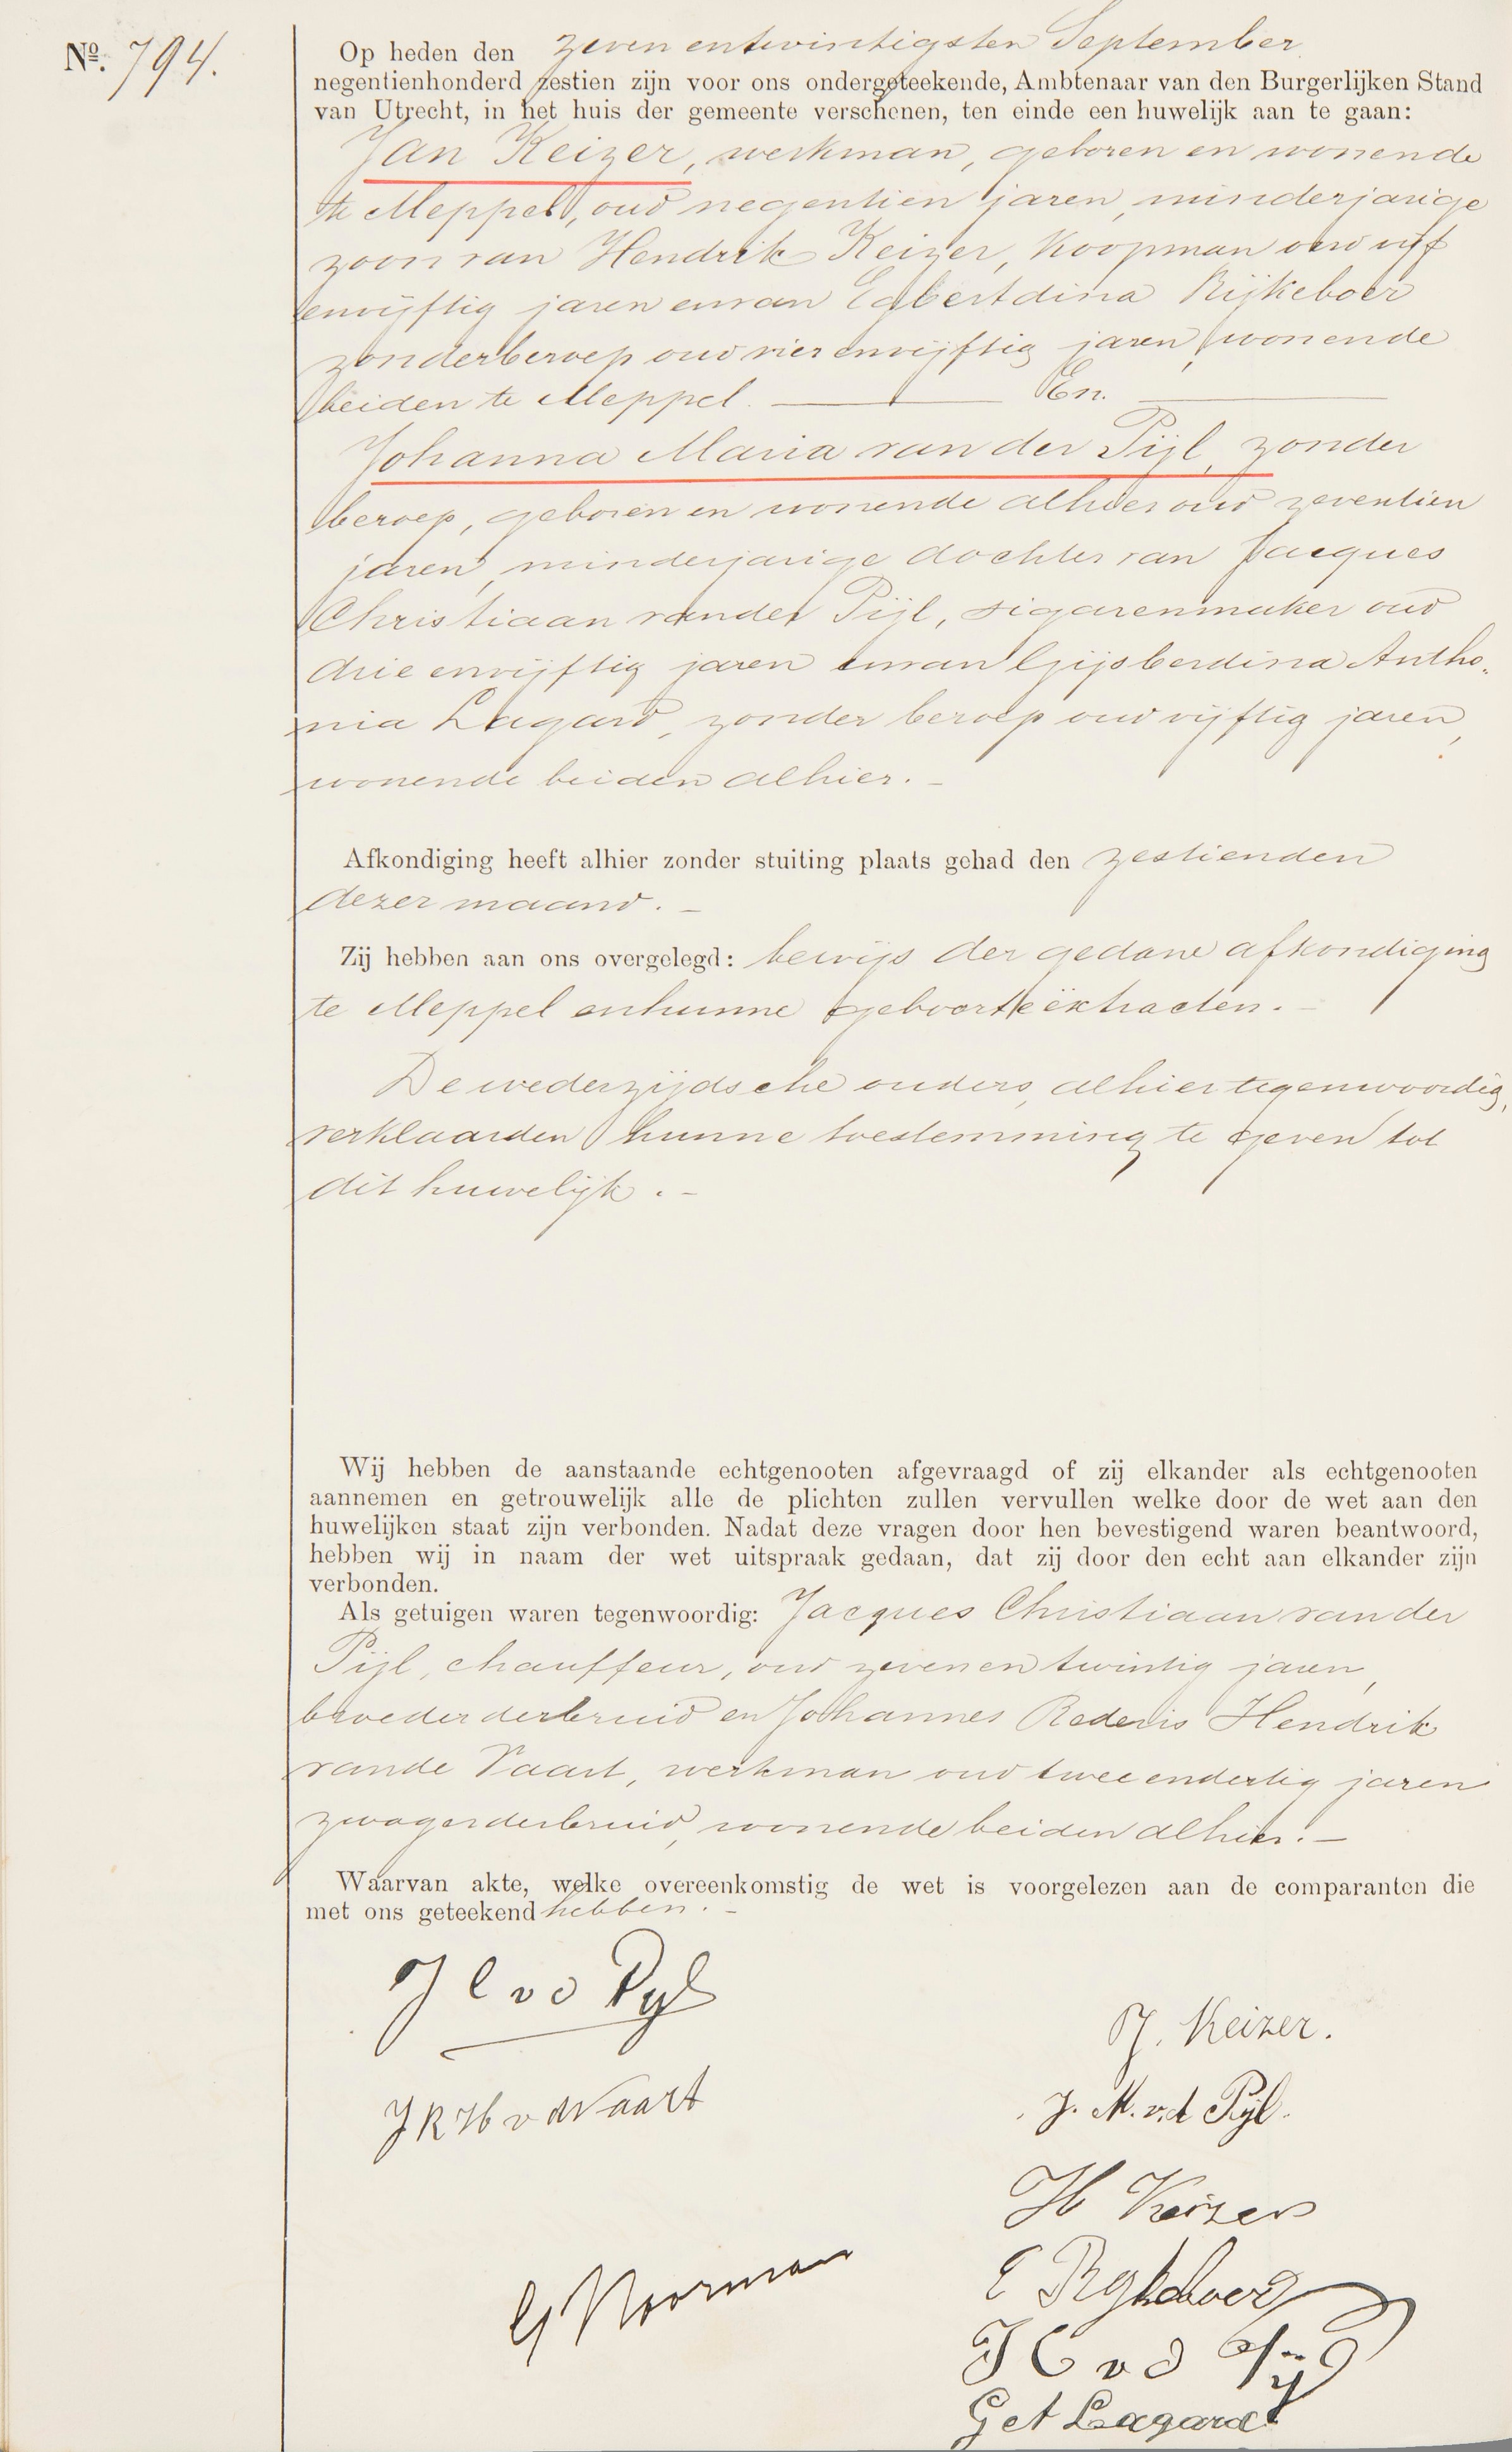 Nº. 794.
Op heden den zevenentwintigsten September
negentienhonderd zestien zijn voor ons ondergeteekende, Ambtenaar van den Burgerlijken Stand
van Utrecht, in het huis der gemeente verschenen, ten einde een huwelijk aan te gaan:
Jan Keizer, werkman, geboren en wonende
te Meppel, oud negentien jaren, minderjarige
zoon van Hendrik Keizer, koopman oud vijf
envijftig jaren en van Egbertdina Rijkeboer
zonder beroep oud vier envijftig jaren, wonende
beiden te Meppel. En.
Johanna Maria van der Pijl, zonder
beroep, geboren en wonende alhier oud zeventien
jaren, minderjarige dochter van Jacques
Christiaan van der Pijl, sigarenmaker oud
drie envijftig jaren en van Gijsberdina Antho„
nia Lagard, zonder beroep oud vijftig jaren,
wonende beiden alhier. –
Afkondiging heeft alhier zonder stuiting plaats gehad den zestienden
dezer maand. –
Zij hebben aan ons overgelegd: bewijs der gedane afkondiging
te Meppel en hunne geboorteëxtracten. –
De wederzijdsche ouders, alhier tegenwoordig,
verklaarden hunne toestemming te geven tot
dit huwelijk. –
Wij hebben de aanstaande echtgenooten afgevraagd of zij elkander als echtgenooten
aannemen en getrouwelijk alle de plichten zullen vervullen welke door de wet aan den
huwelijken staat zijn verbonden. Nadat deze vragen door hen bevestigend waren beantwoord,
hebben wij in naam der wet uitspraak gedaan, dat zij door den echt aan elkander zijn
verbonden.
Als getuigen waren tegenwoordig: Jacques Christiaan van der
Pijl, chauffeur, oud zevenentwintig jaren,
broeder der bruid en Johannes Rederis Hendrik
van de Vaart, werkman oud twee endertig jaren
zwager der bruid, wonende beiden alhier. –
Waarvan akte, welke overeenkomstig de wet is voorgelezen aan de comparanten die
met ons geteekend hebben. –
J C v d Pyl
J. Keizer.
J R H v d Vaart
J. M. v.d Pijl.
H Keizer
E Rijkeboer
G Noorman
J C v d Pijl
G A Lagard